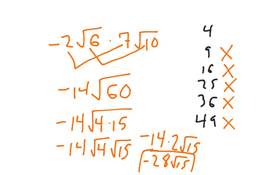 -2√6 · 7√10
-14√60
-14√4·15
-14√4 √15
-14·2√15
-28√15
4
9 ×
16 ×
25 ×
36 ×
49 ×